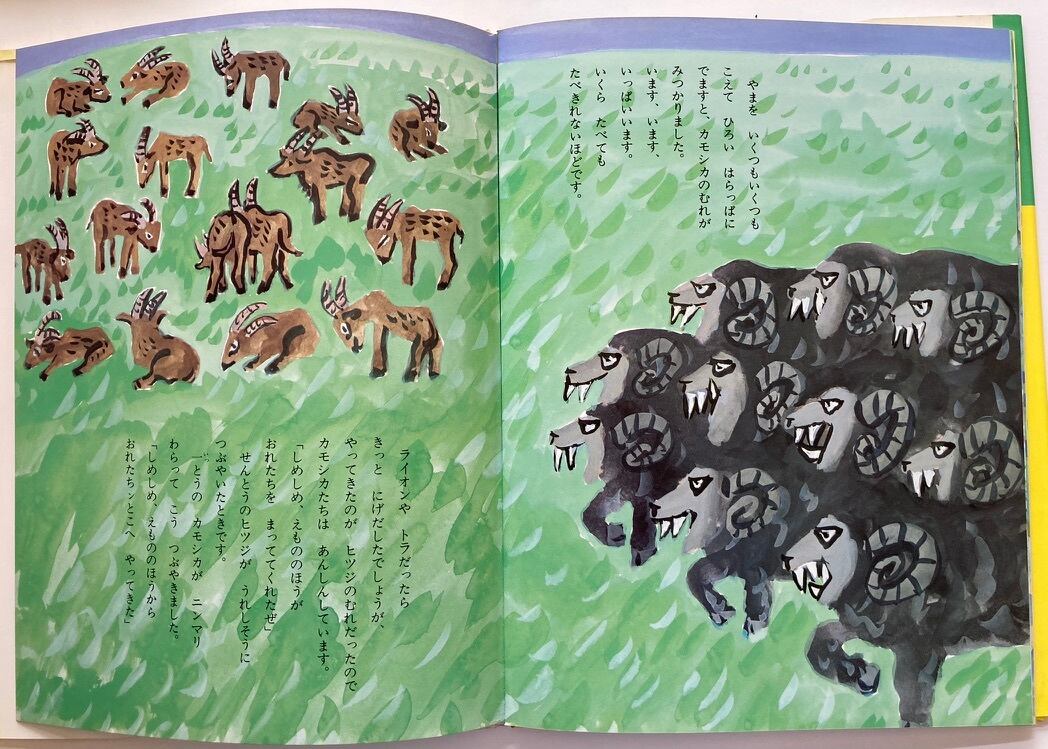 やまを いくつもいくつも
こえて ひろい はらっぱに
でますと、カモシカのむれが
みつかりました。
います、います、
いっぱいいます。
いくら たべても
たべきれないほどです。
ライオンや トラだったら
きっと にげだしたでしょうが、
やってきたのが ヒツジのむれだったので
カモシカたちは あんしんしています。
「しめしめ、えもののほうが
おれたちを まっててくれたぜ」
せんとうのヒツジが うれしそうに
つぶやいたときです。
一とうの カモシカが ニンマリ
わらって こう つぶやきました。
「しめしめ、えもののほうから
おれたちンとこへ やってきた」